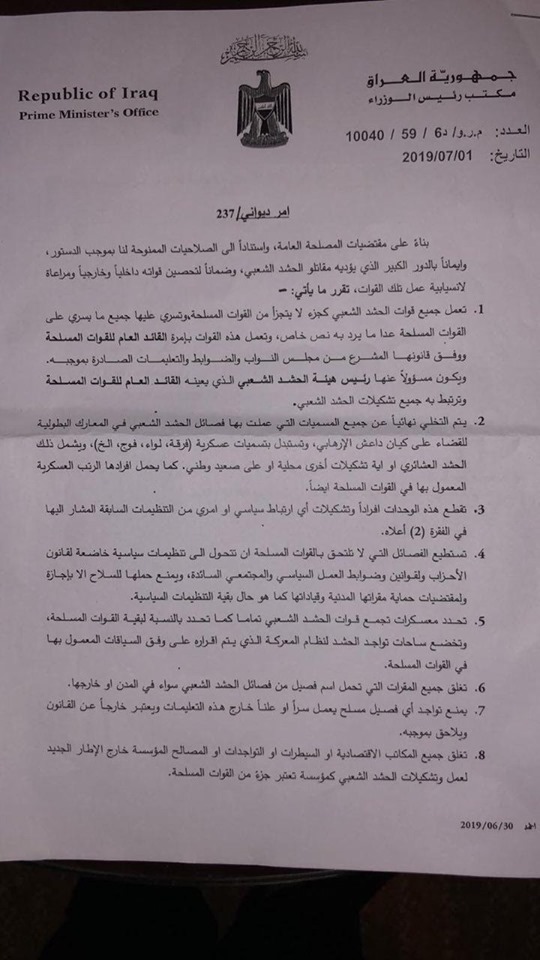 بسم الله الرحمن الرحيم
جمهورية العراق
مكتب رئيس الوزراء
Republic of Iraq
Prime Minister's Office
العدد: م.ر.و/ د6 / 59 / 10040
التاريخ: 2019/07/01
امر ديواني/237
بناءً على مقتضيات المصلحة العامة، واستناداً الى الصلاحيات الممنوحة لنا بموجب الدستور،
وايماناً بالدور الكبير الذي يؤديه مقاتلو الحشد الشعبي، وضماناً لتحصين قواته داخلياً وخارجياً ومراعاة
لانسيابية عمل تلك القوات، تقرر ما يأتي: -
1. تعمل جميع قوات الحشد الشعبي كجزء لا يتجزأ من القوات المسلحة،وتسري عليها جميع ما يسري على
القوات المسلحة عدا ما يرد به نص خاص، وتعمل هذه القوات بإمرة القائد العام للقوات المسلحة
ووفق قانونها المشرع من مجلس النواب والضوابط والتعليمات الصادرة بموجبه.
ويكون مسؤولاً عنها رئيس هيئة الحشد الشعبي الذي يعينه القائد العام للقوات المسلحة
وترتبط به جميع تشكيلات الحشد الشعبي.
2. يتم التخلي نهائياً عن جميع المسميات التي عملت بها فصائل الحشد الشعبي في المعارك البطولية
للقضاء على كيان داعش الإرهابي، وتستبدل بتسميات عسكرية (فرقة، لواء، فوج، الخ)، ويشمل ذلك
الحشد العشائري او اية تشكيلات أخرى محلية او على صعيد وطني. كما يحمل افرادها الرتب العسكرية
المعمول بها في القوات المسلحة ايضاً.
3. تقطع هذه الوحدات افراداً وتشكيلات أي ارتباط سياسي او امري من التنظيمات السابقة المشار اليها
في الفقرة (2) أعلاه.
4. تستطيع الفصائل التي لا تلتحق بالقوات المسلحة ان تتحول الى تنظيمات سياسية خاضعة لقانون
الأحزاب ولقوانين وضوابط العمل السياسي والمجتمعي السائدة، ويمنع حملها للسلاح الا بإجازة
ولمقتضيات حماية مقراتها المدنية وقياداتها كما هو حال بقية التنظيمات السياسية.
5. تحدد معسكرات تجمع قوات الحشد الشعبي تماما كما تحدد بالنسبة لبقية القوات المسلحة،
وتخضع ساحات تواجد الحشد لنظام المعركة الذي يتم اقراره على وفق السياقات المعمول بها
في القوات المسلحة.
6. تغلق جميع المقرات التي تحمل اسم فصيل من فصائل الحشد الشعبي سواء في المدن او خارجها.
7. يمنع تواجد أي فصيل مسلح يعمل سراً او علناً خارج هذه التعليمات ويعتبر خارجاً عن القانون
ويلاحق بموجبه.
8. تغلق جميع المكاتب الاقتصادية او السيطرات او التواجدات او المصالح المؤسسة خارج الإطار الجديد
لعمل وتشكيلات الحشد الشعبي كمؤسسة تعتبر جزة من القوات المسلحة.
2019/06/30